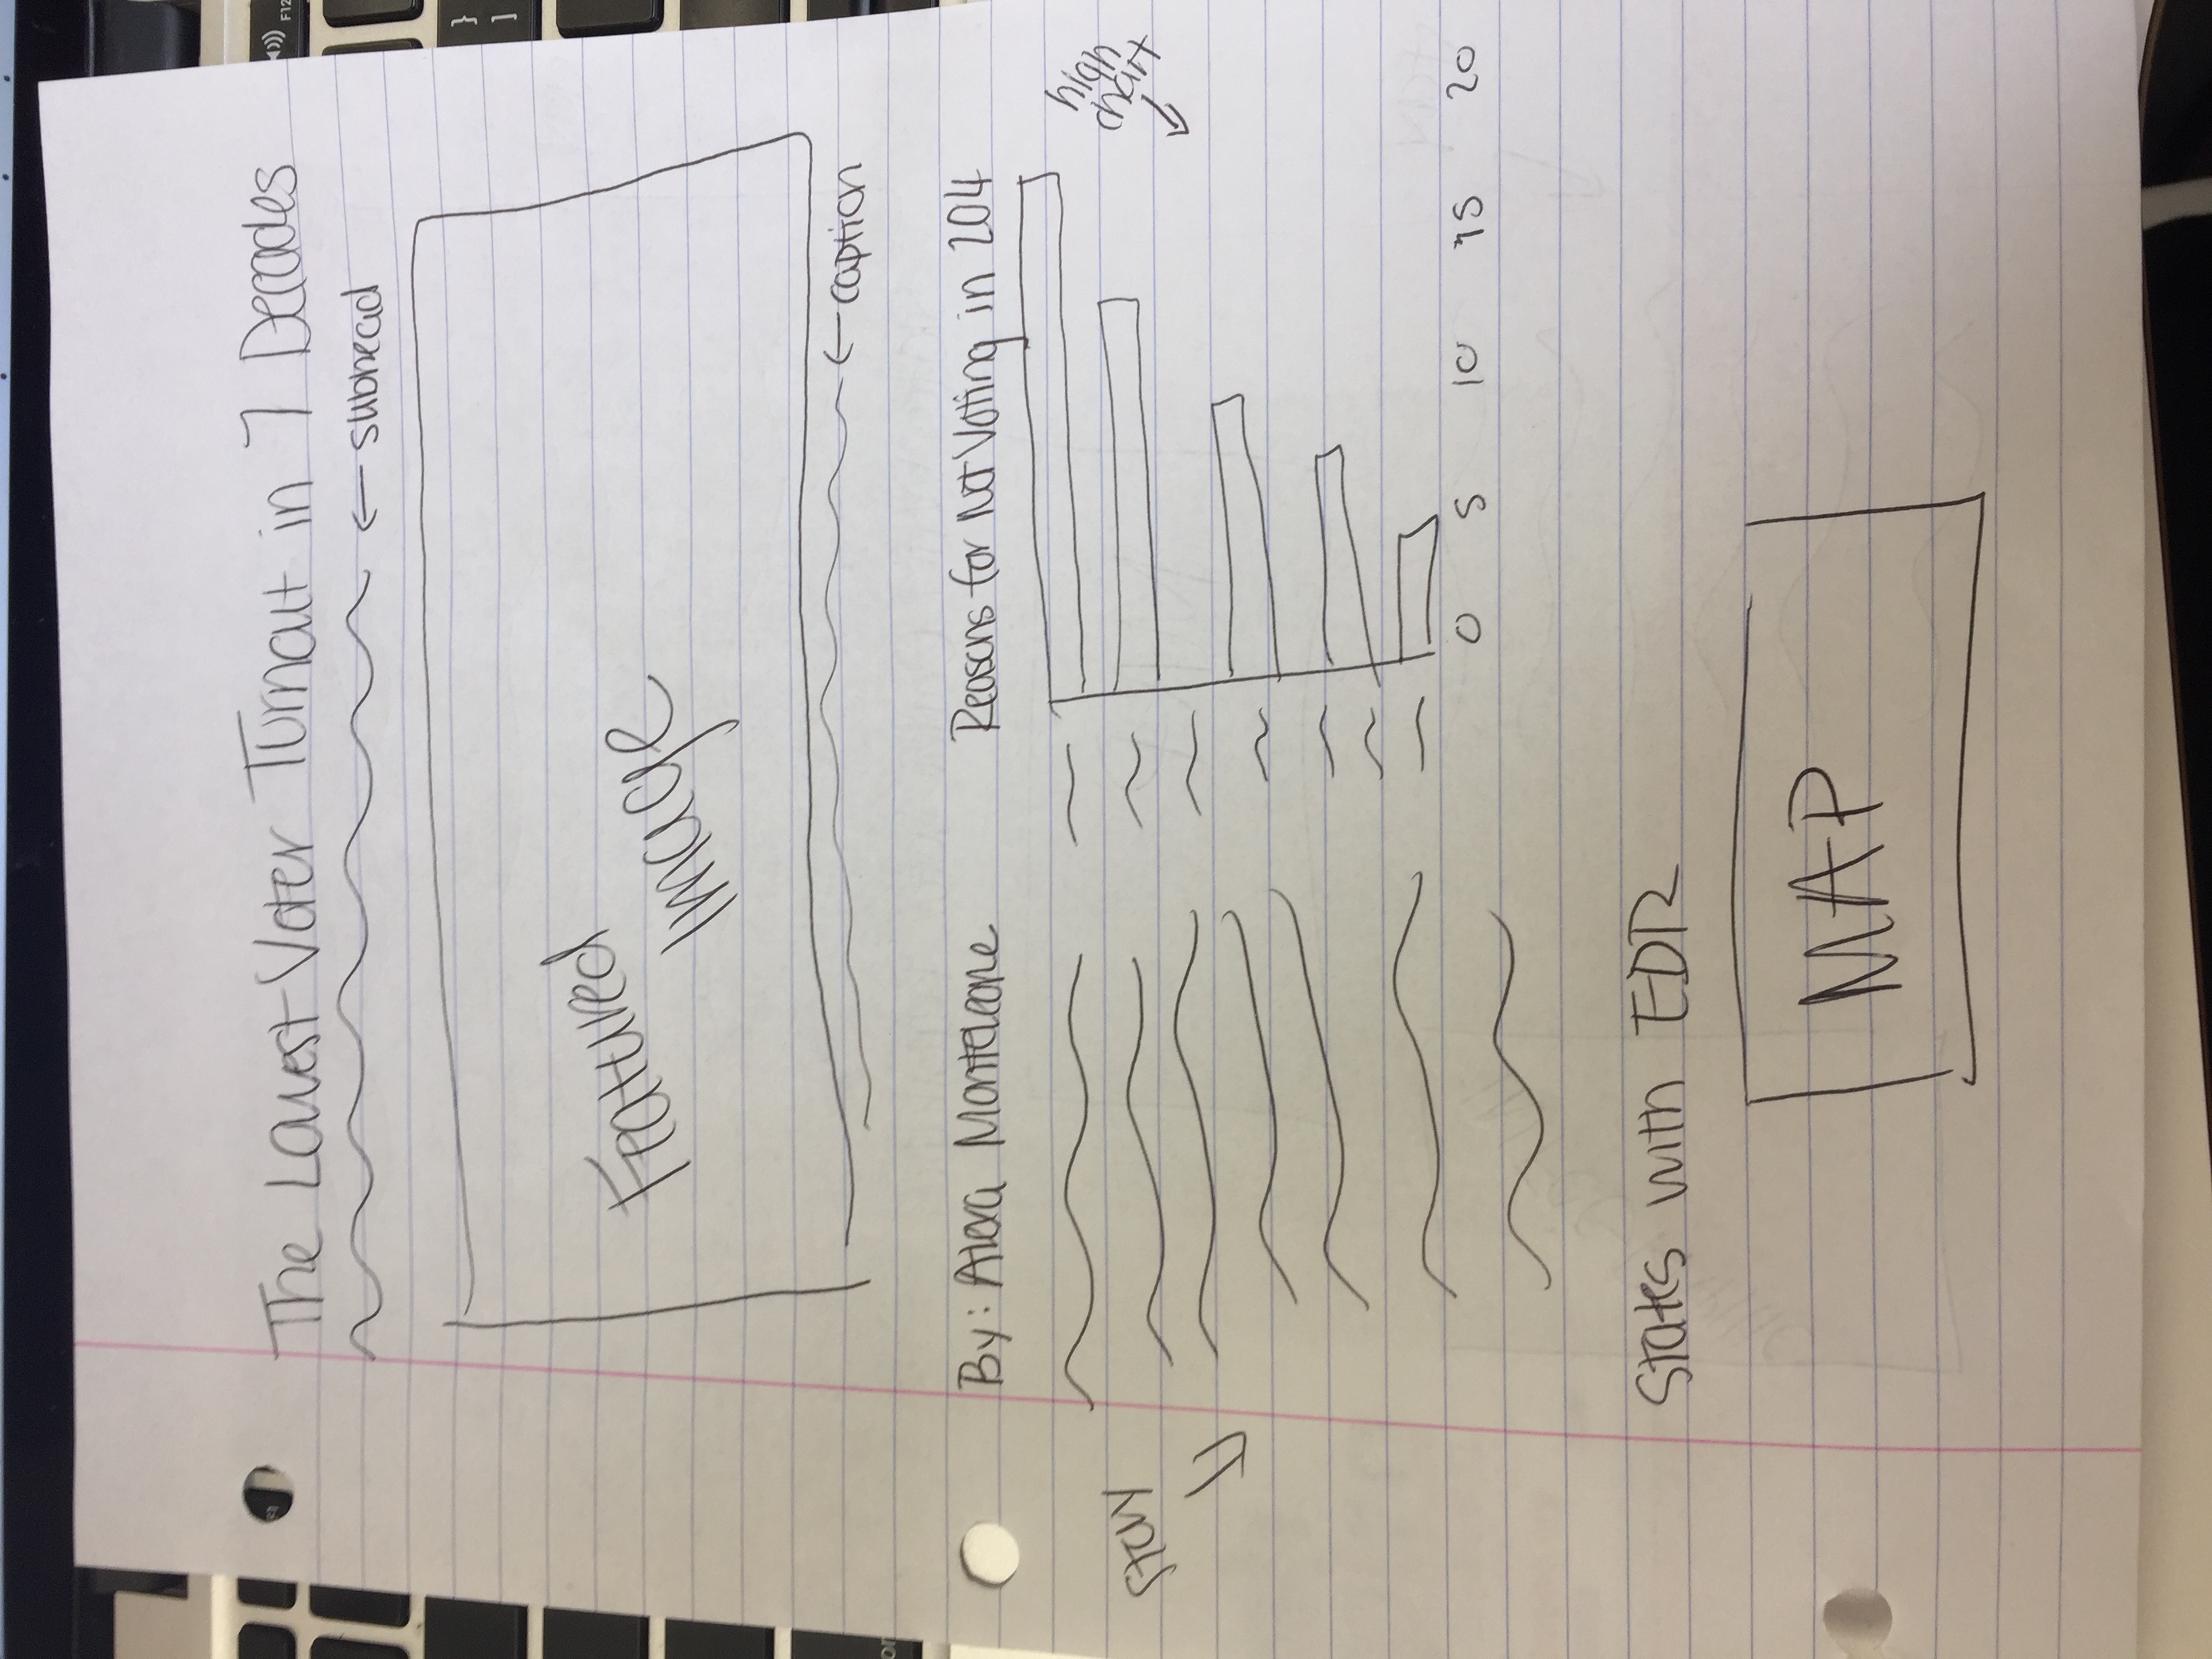 The Lowest Voter Turnout in 7 Decades
← subhead
Featured
Image
← caption
By: Alexa Monteleone
Reasons for Not Voting in 204
story
high
chart
0 5 10 15 20
States with EDR
MAP
F12
}
]